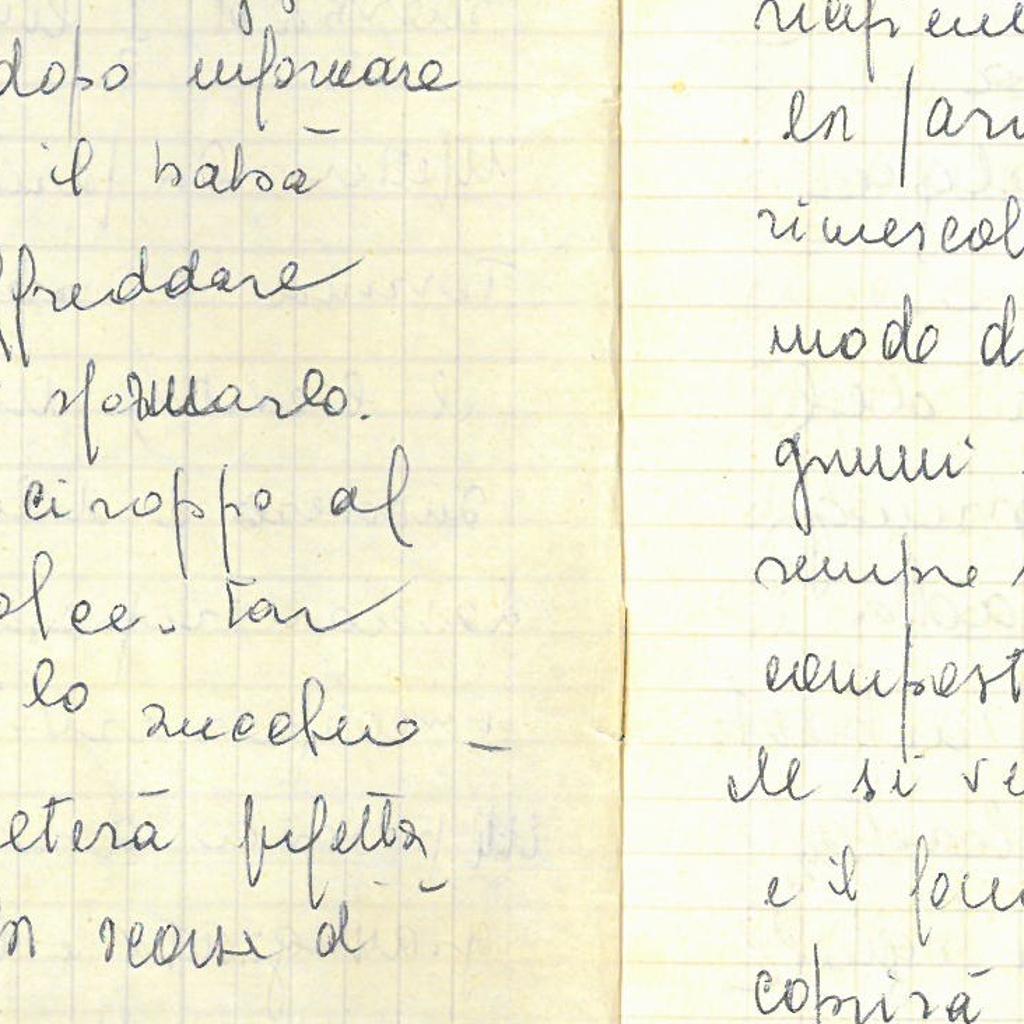 dopo infornare
il babà
ffreddare
sformarlo.
ciroppo al
olce. Far
lo zucchero -
eterà
d
en
rimescol
modo d
grumi
sempre
compost
Ne si ve
e il
coprirà